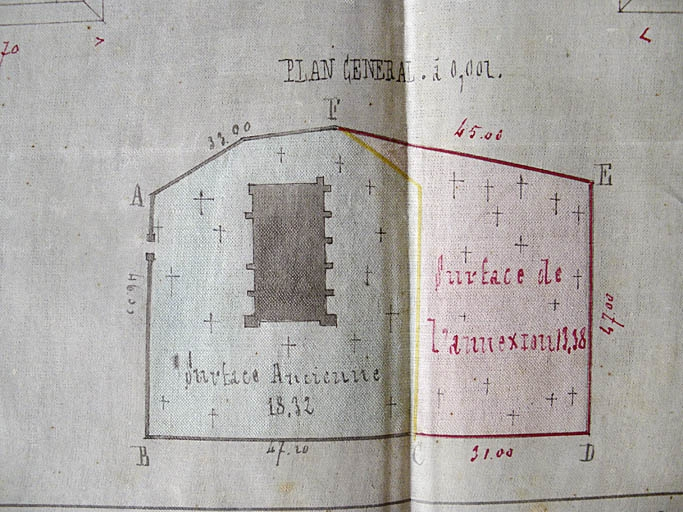 70
PLAN GENERAL. à 0,001.
F
33.00
45.00
A
E
Surface de
l'annexion 13,38
47.00
Surface Ancienne
18,32
B
47.20
C
31.00
D